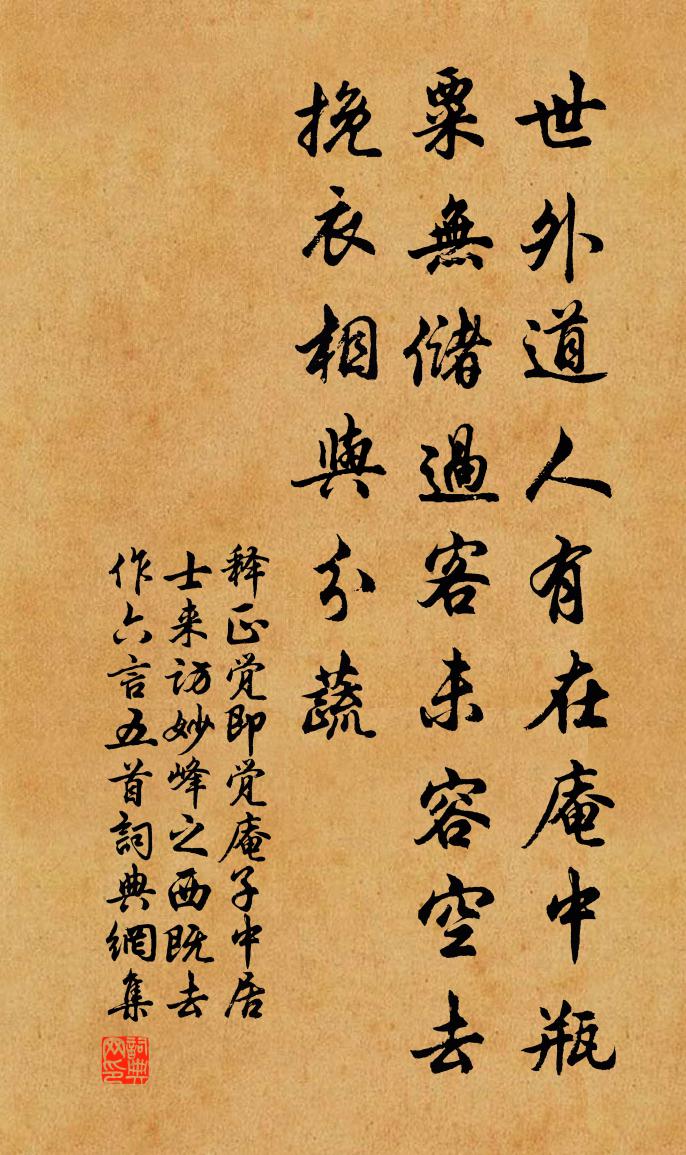 世外道人有在庵中瓶
粟無儲過客未容空去
挽衣相與分蔬
释正觉即觉庵子中居
士来访妙峰之西既去
作六言五首詞典網集
詞典
网印